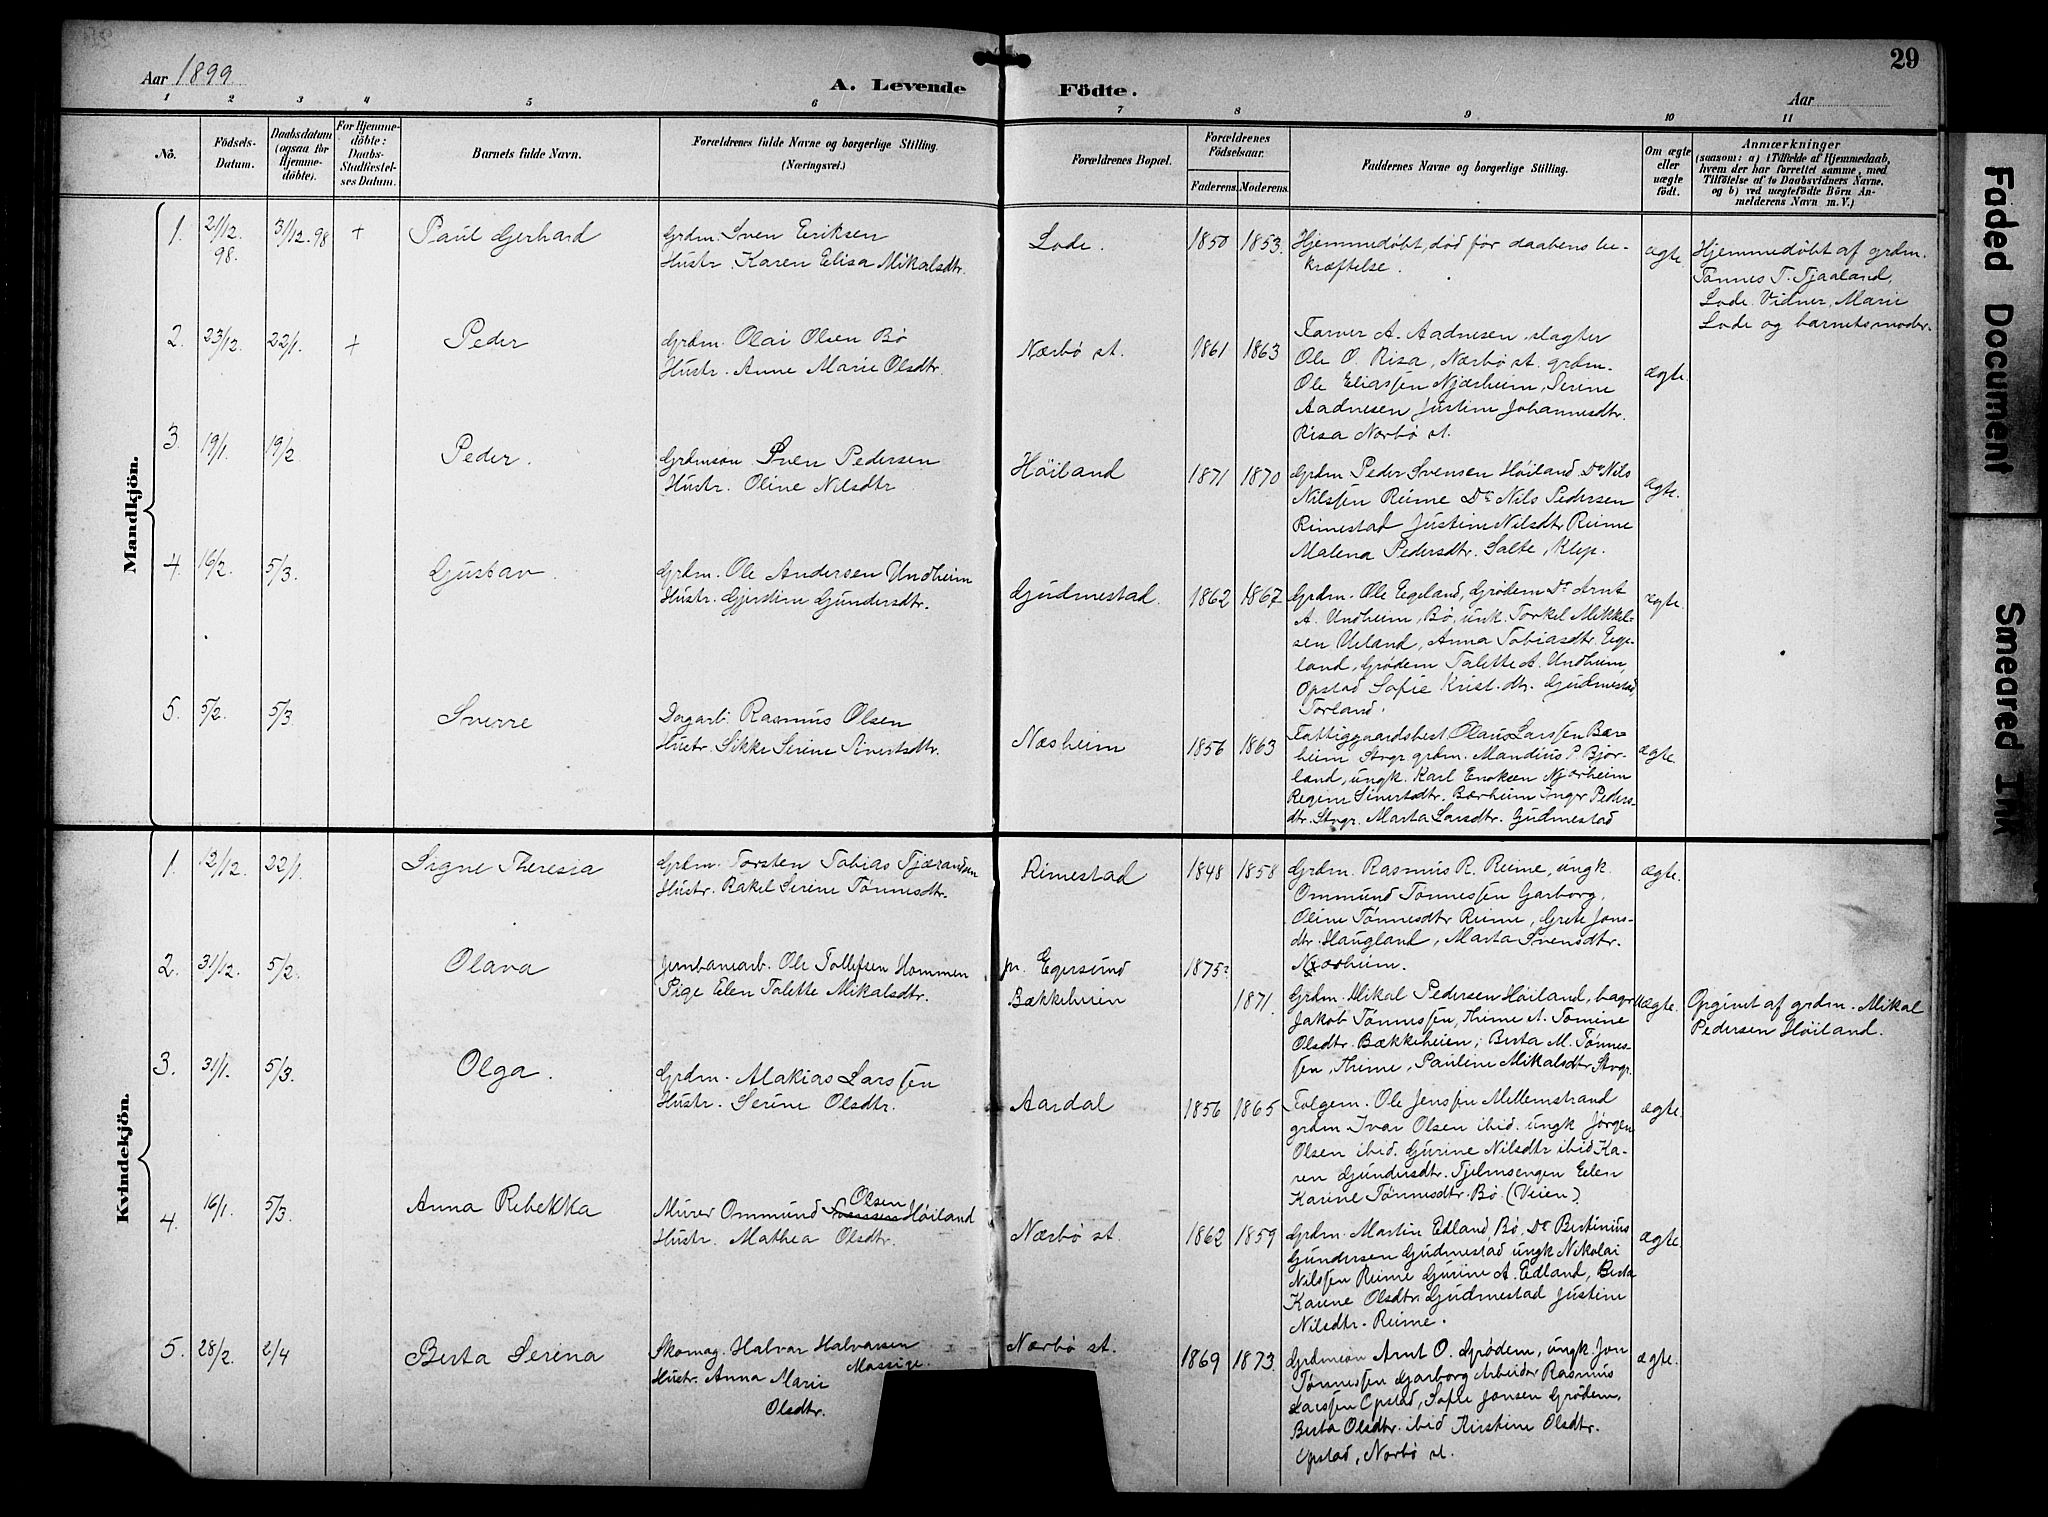 29
Aar 1899
A. Levende Födte.
Aar
1 2 3 4 5 6 7 8 9 10 11
No.
Födsels-
Datum.
Daabsdatum
(ogsaa for
Hjemme-
döbte).
For Hjemme-
döbte:
Daabs-
Stadfæstel-
ses Datum.
Barnets fulde Navn.
Forældrenes fulde Navne og borgerlige Stilling.
(Næringsvei.)
Forældrenes Bopæl.
Forældrenes
Födselsaar.
Faderens. Moderens.
Faddernes Navne og borgerlige Stilling.
Om ægte
eller
uægte
födt.
Anmærkninger
(saasom: a) i Tilfælde af Hjemmedaab,
hvem der har forrettet samme, med
Tilföielse af to Daabsvidners Navne,
og b) ved uægtefödte Börn An-
melderens Navn m. V.)
Mandkjön.
1. 21/12 98. 31/12 98 +
Paul Gerhard
Grdm. Sven Eriksen
Hustr. Karen Elisa Mikalsdtr.
Lode.
1850 1853.
Hjemmedøbt, død før daabens be-
kræftelse.
ægte.
Hjemmedøbt af grdm.
Tønnes T. Tjaaland,
Lode. Vidner, Marie
Lode og barnets moder.
2. 23/12. 22/1. +
Peder
Grdm. Olai Olsen Bø
Hustr. Anne Marie Olsdtr.
Nærbø st.
1861 1863
Farver A. Aadnesen, slagter
Ole O. Risa, Nærbø st. grdm.
Ole Eliassen Njærheim, Serine
Aadnesen, Justine Johannesdtr.
Risa Nærbø st.
ægte.
3. 19/1. 19/2
Peder.
Grdmsøn Sven Pedersen
Hustr. Oline Nilsdtr
Höiland
1871 1870
Grdm Peder Svensen Höiland Do Nils
Nilssen Reime Do Nils Pedersen
Rimestad Justine Nilsdtr Reime
Malena Pedersdtr. Salte, Klep.
ægte.
4. 16/2. 5/3.
Gustav.
Grdm. Ole Andersen Undheim
Hustr. Gjertine Gundersdtr.
Gudmestad.
1862 1867
Grdm. Ole Egeland, Grødem Do Arnt
A. Undheim, Bø, unk. Torkel Mikkel-
sen Ueland, Anna Tobiasdtr. Ege-
land, Grødem Talette A. Undheim,
Opstad Sofie Krist. dtr. Gudmestad,
Torland.
ægte.
5. 5/2. 5/3.
Sverre
Dagarb. Rasmus Olsen
Hustr. Sikke Serine Sivertsdtr.
Næsheim
1856 1863
Fattiggaardsbest. Olaus Larssen Bær-
heim Stvgr grdm. Mandius P Bjor-
land, ungk. Karl Enoksen Njærheim
Regine Sivertsdtr. Bærheim Inger Peders-
dtr. Stvgr. Marta Larsdtr. Gudmestad
ægte.
Kvindekjön.
1. 12/12. 22/1.
Signe Theresia
Grdm. Torsten Tobias Tjærandsen
Hustr. Rakel Serine Tønnesdtr.
Rimestad
1848 1858
Grdm. Rasmus R. Reime, ungk.
Ommund Tønnessen Garborg,
Oline Tønnesdtr Reime, Grete Jons-
dtr. Haugland, Marta Svensdtr.
Nærheim.
ægte.
2. 31/12. 5/2.
Olava
Jernbanearb. Ole Tollefsen Hommen
Pige Elen Talette Mikalsdtr.
pr. Egersund
Bækkeheien
1875? 1871.
Grdm. Mikal Pedersen Höiland, bagr.
Jakob Tønnessen, Thime A. Tomine
Olsdtr. Bækkeheien, Berta M. Tønnes-
sen, Thime, Pauline Mikalsdtr. Stvgr.
uægte.
Opgivet af grdm. Mikal
Pedersen Höiland.
3. 31/1. 5/3.
Olga.
Grdm. Malakias Larssen
Hustr. Serine Olsdtr.
Aardal
1856 1865
Folgem. Ole Jenssen Mellemstrand
grdm Ivar Olsen ibid. ungk Jørgen
Olsen ibid. Gurine Nilsdtr ibid Ka-
ren Gundersdtr. Tjelmsengen Elen
Karine Tønnesdtr. Bø (Veien)
ægte.
4. 16/1. 5/3.
Anna Rebekka
Murer Ommund Olsen Höiland
Hustr. Mathea Olsdtr.
Nærbø st.
1862 1859
Grdm. Martin Edland, Bø, Do Bertinius
Gundersen Gudmestad ungk Nikolai
Nilssen Reime Gurine A. Edland, Berta
Karine Olsdtr. Gudmestad Justine
Nilsdtr. Reime.
ægte.
5. 28/2. 2/4
Berta Serina
Skomag. Halvar Halvarsen
Massige.
Hustr. Anna Marie
Olsdtr.
Nærbø st.
1869 1873
Grdmsøn Arnt O. Grødem, ungk. Jon
Tønnessen Garborg Arbeider Rasmus
Larssen Opstad, Sofie Jonsen Grødem,
Berta Olsdtr. ibid Kirstine Olsdtr.
Opstad, Nærbø st.
ægte.
Faded Document
Smeared Ink